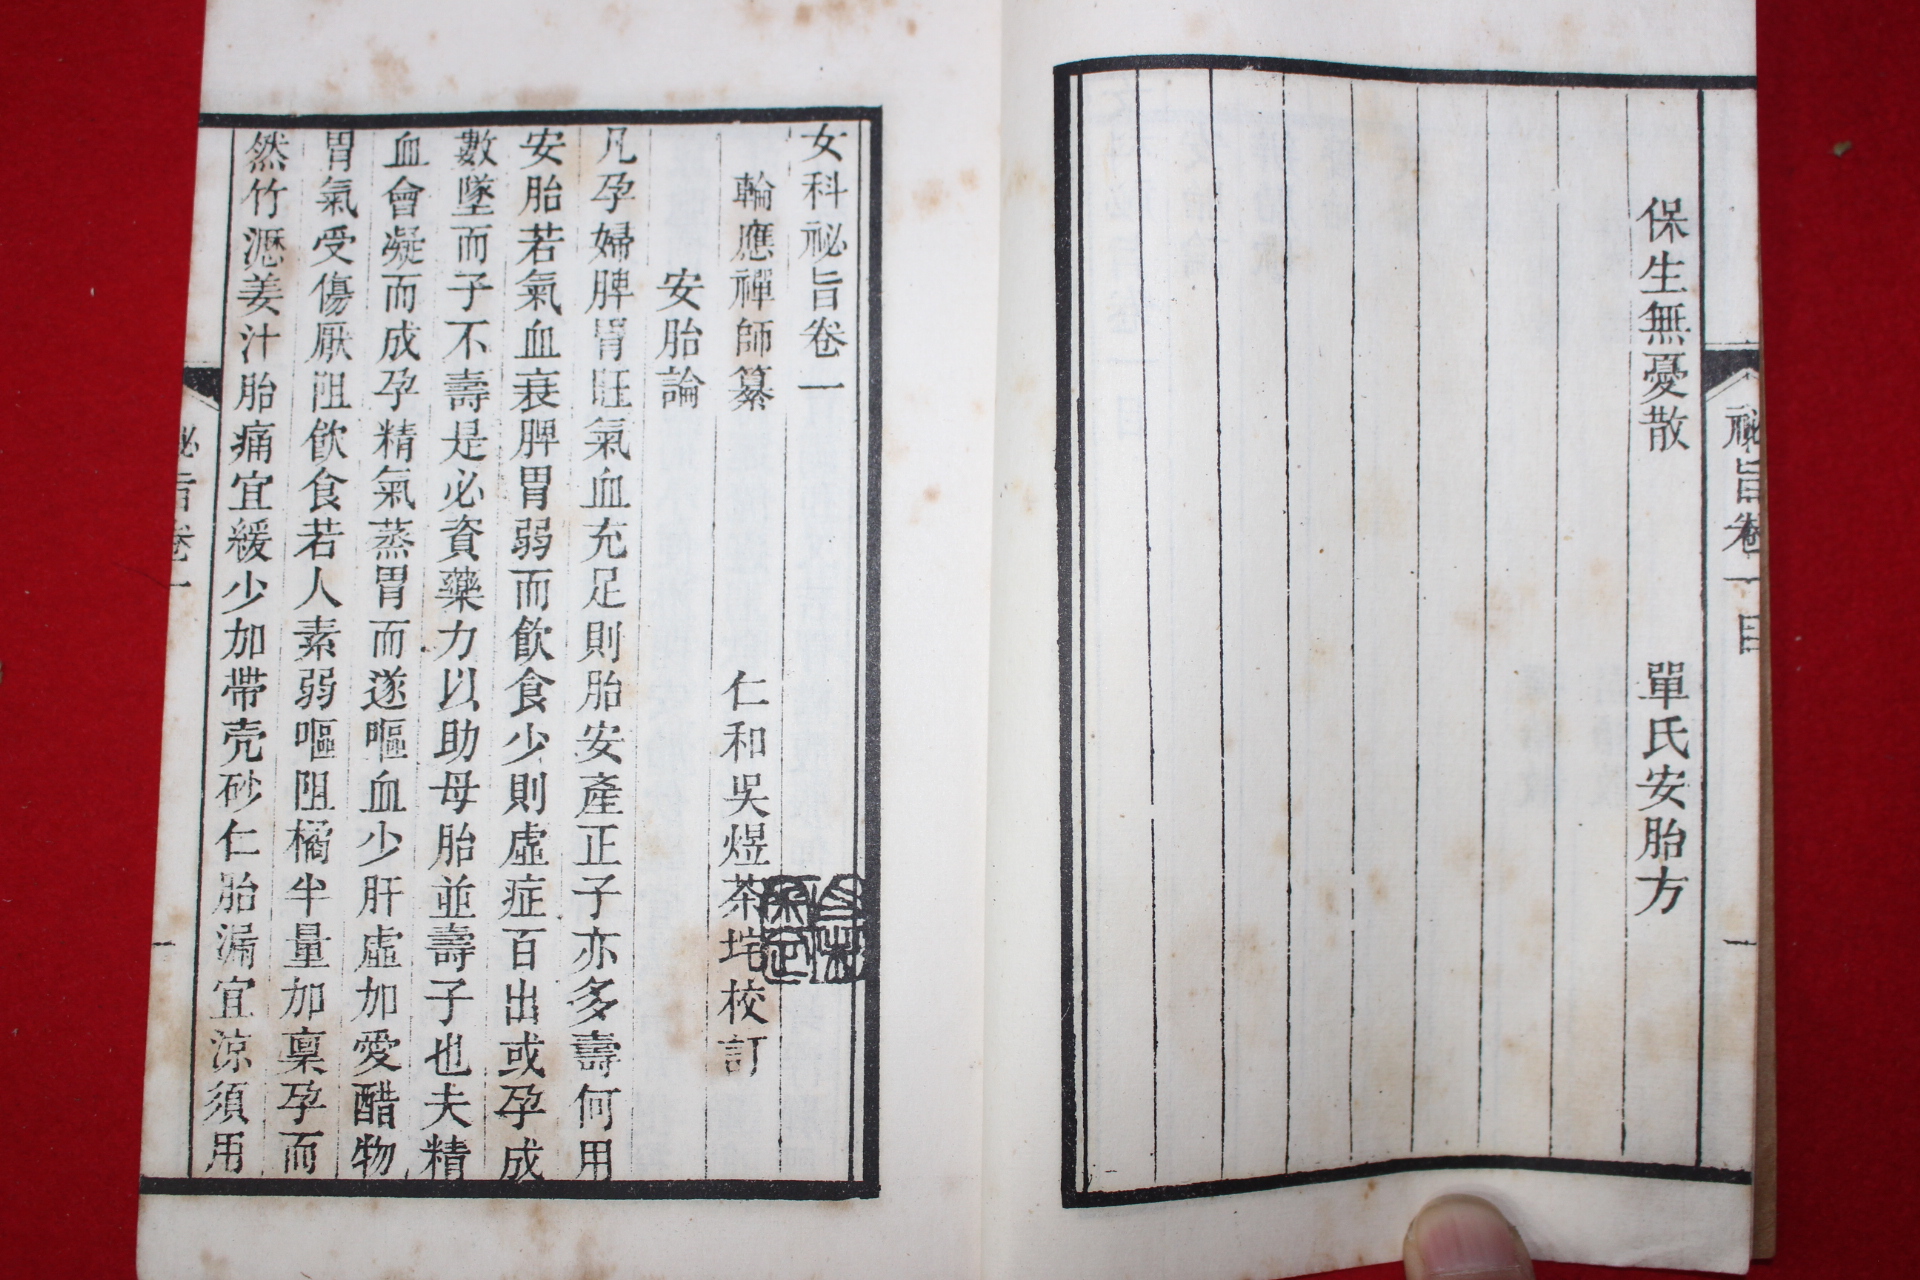 保生無憂散　單氏安胎方
祕旨卷一目
一
女科祕旨卷一
輪應禪師纂　仁和吳煜茶垞校訂
安胎論
凡孕婦脾胃旺氣血充足則胎安產正子亦多壽何用
安胎若氣血衰脾胃弱而飲食少則虛症百出或孕成
數墜而子不壽是必資藥力以助母胎並壽子也夫精
血會凝而成孕精氣蒸胃而遂嘔血少肝虛加愛醋物
胃氣受傷厭阻飲食若人素弱嘔阻橘半量加稟孕而
然竹瀝姜汁胎痛宜緩少加帶壳砂仁胎漏宜涼須用
祕旨卷一
一